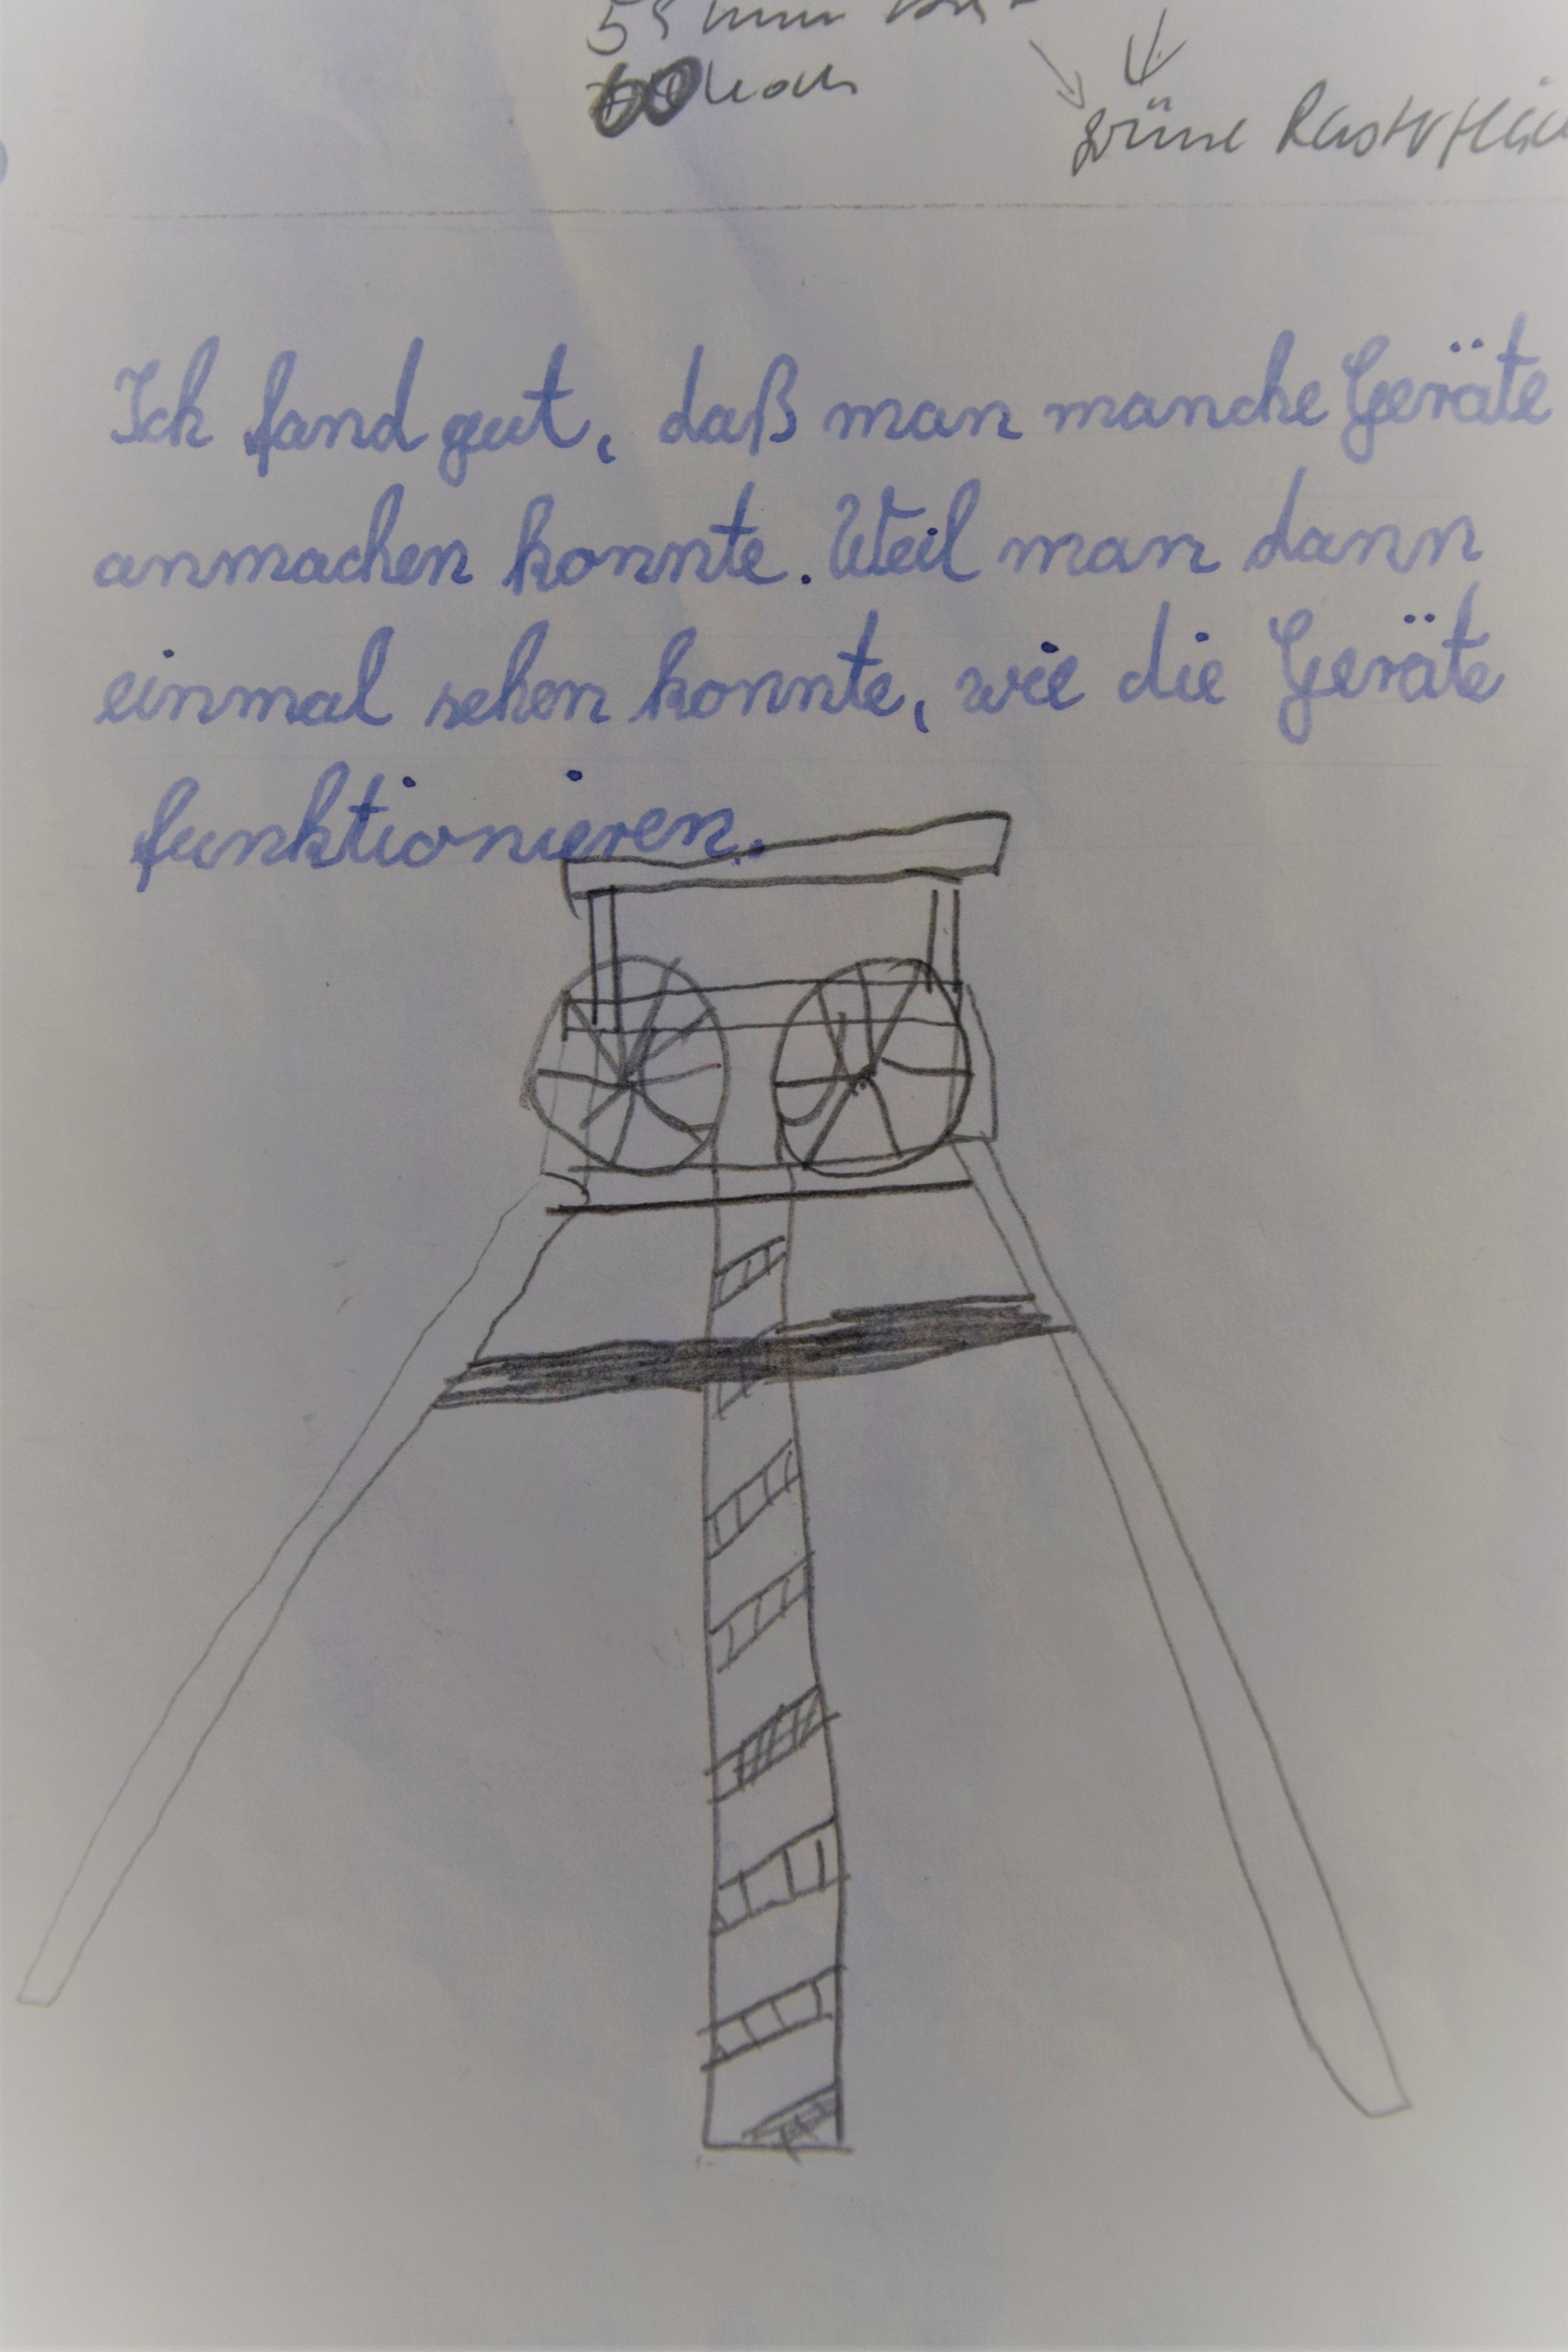 55 mm
60 hoch
grüne
Ich fand gut, daß man manche Geräte
anmachen konnte. Weil man dann
einmal sehen konnte, wie die Geräte
funktionieren.